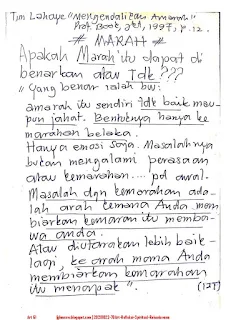 Tim Lahaye "Mengendalikan Amarah"
Prof. Book, Jkt, 1997, p. 12.
# MARAH #
Apakah Marah itu dapat di
benarkan atau Tdk ???
"Yang benar ialah bhw:
amarah itu sendiri tdk baik mau-
pun jahat. Bentuknya hanya ke
marahan belaka.
Hanya emosi saja. Masalahnya
bukan mengalami perasaan
atau kemarahan.... pd awal.
Masalah dgn kemarahan ada-
lah arah kemana Anda mem
biarkan kemarahan itu memba-
wa anda.
Atau diutarakan lebih baik
lagi, ke arah mana Anda
membiarkan kemarahan
itu menapak".
(127)